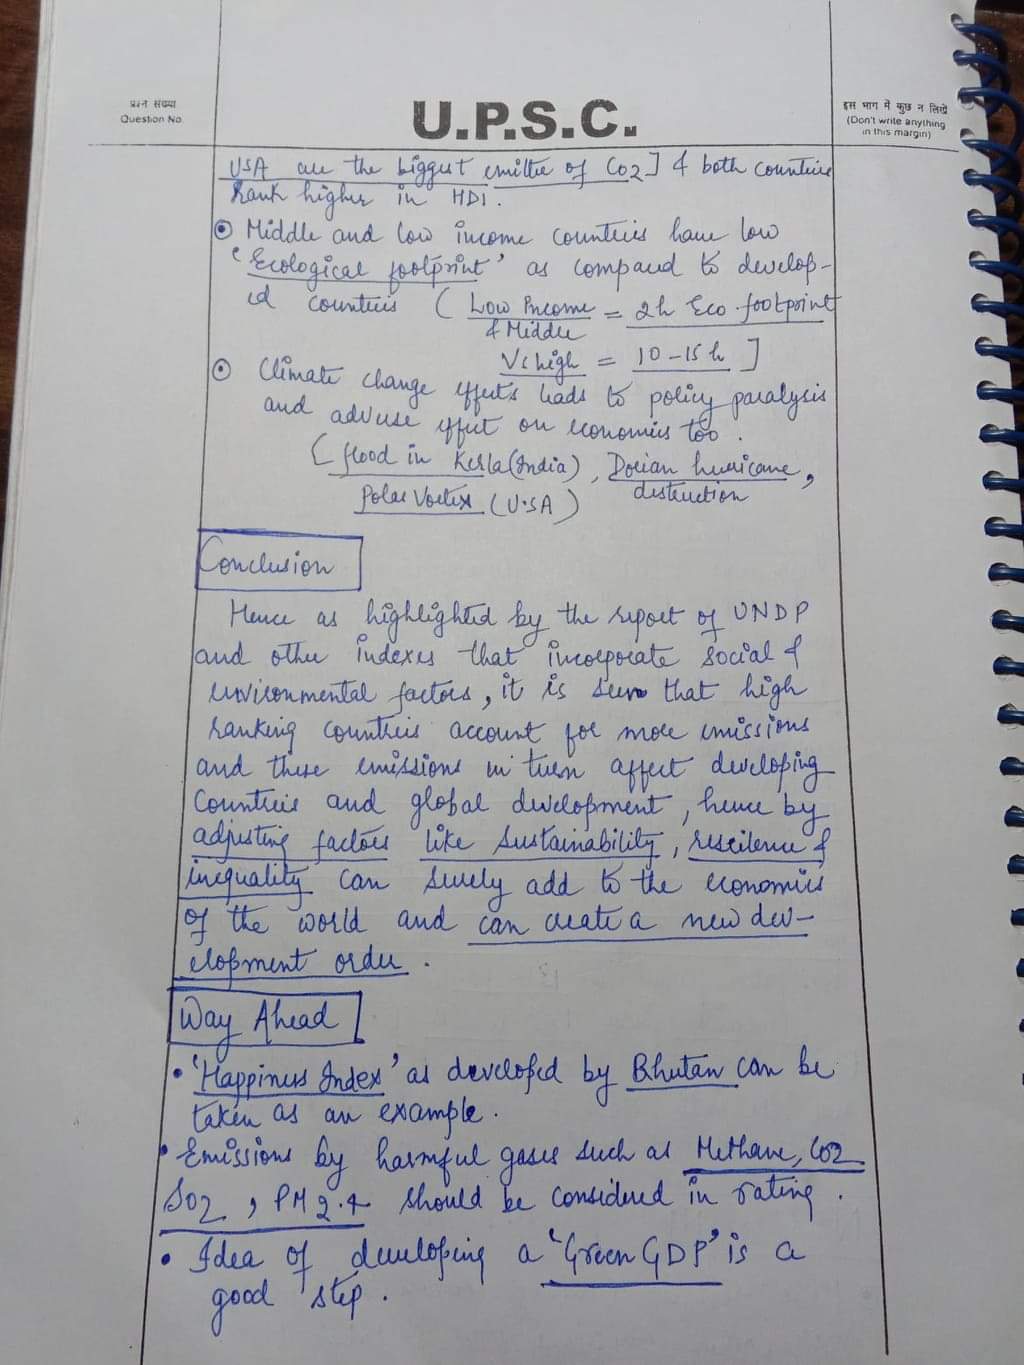 प्रश्न संख्या
Question No.
U.P.S.C.
इस भाग में कुछ न लिखें
(Don't write anything
in this margin)
USA are the biggest emitter of CO2] & both countries
Rank higher in HDI.
Middle and low income countries have low
'Ecological footprint' as compared to develop-
ed countries ( Low Income = 2h Eco. footprint
& Middle
Vs high = 10-15 h ]
Climate change effects leads to policy paralysis
and adverse effect on economies too.
[ flood in Kerla (India), Dorian hurricane,
destruction
Polar Vortex (U.S.A)
Conclusion
Hence as highlighted by the report of UNDP
and other indexes that incorporate social &
environmental factors, it is seen that high
ranking countries account for more emissions
and these emissions in turn affect developing
countries and global development, hence by
adjusting factors like sustainability, rescilence &
inequality can surely add to the economies
of the world and can create a new dev-
elopment order.
Way Ahead
• 'Happiness Index' as developed by Bhutan can be
taken as an example.
• Emissions by harmful gases such as Methane, CO2
SO2, PM 2.4 should be considered in rating.
• Idea of developing a 'Green GDP' is a
good step.